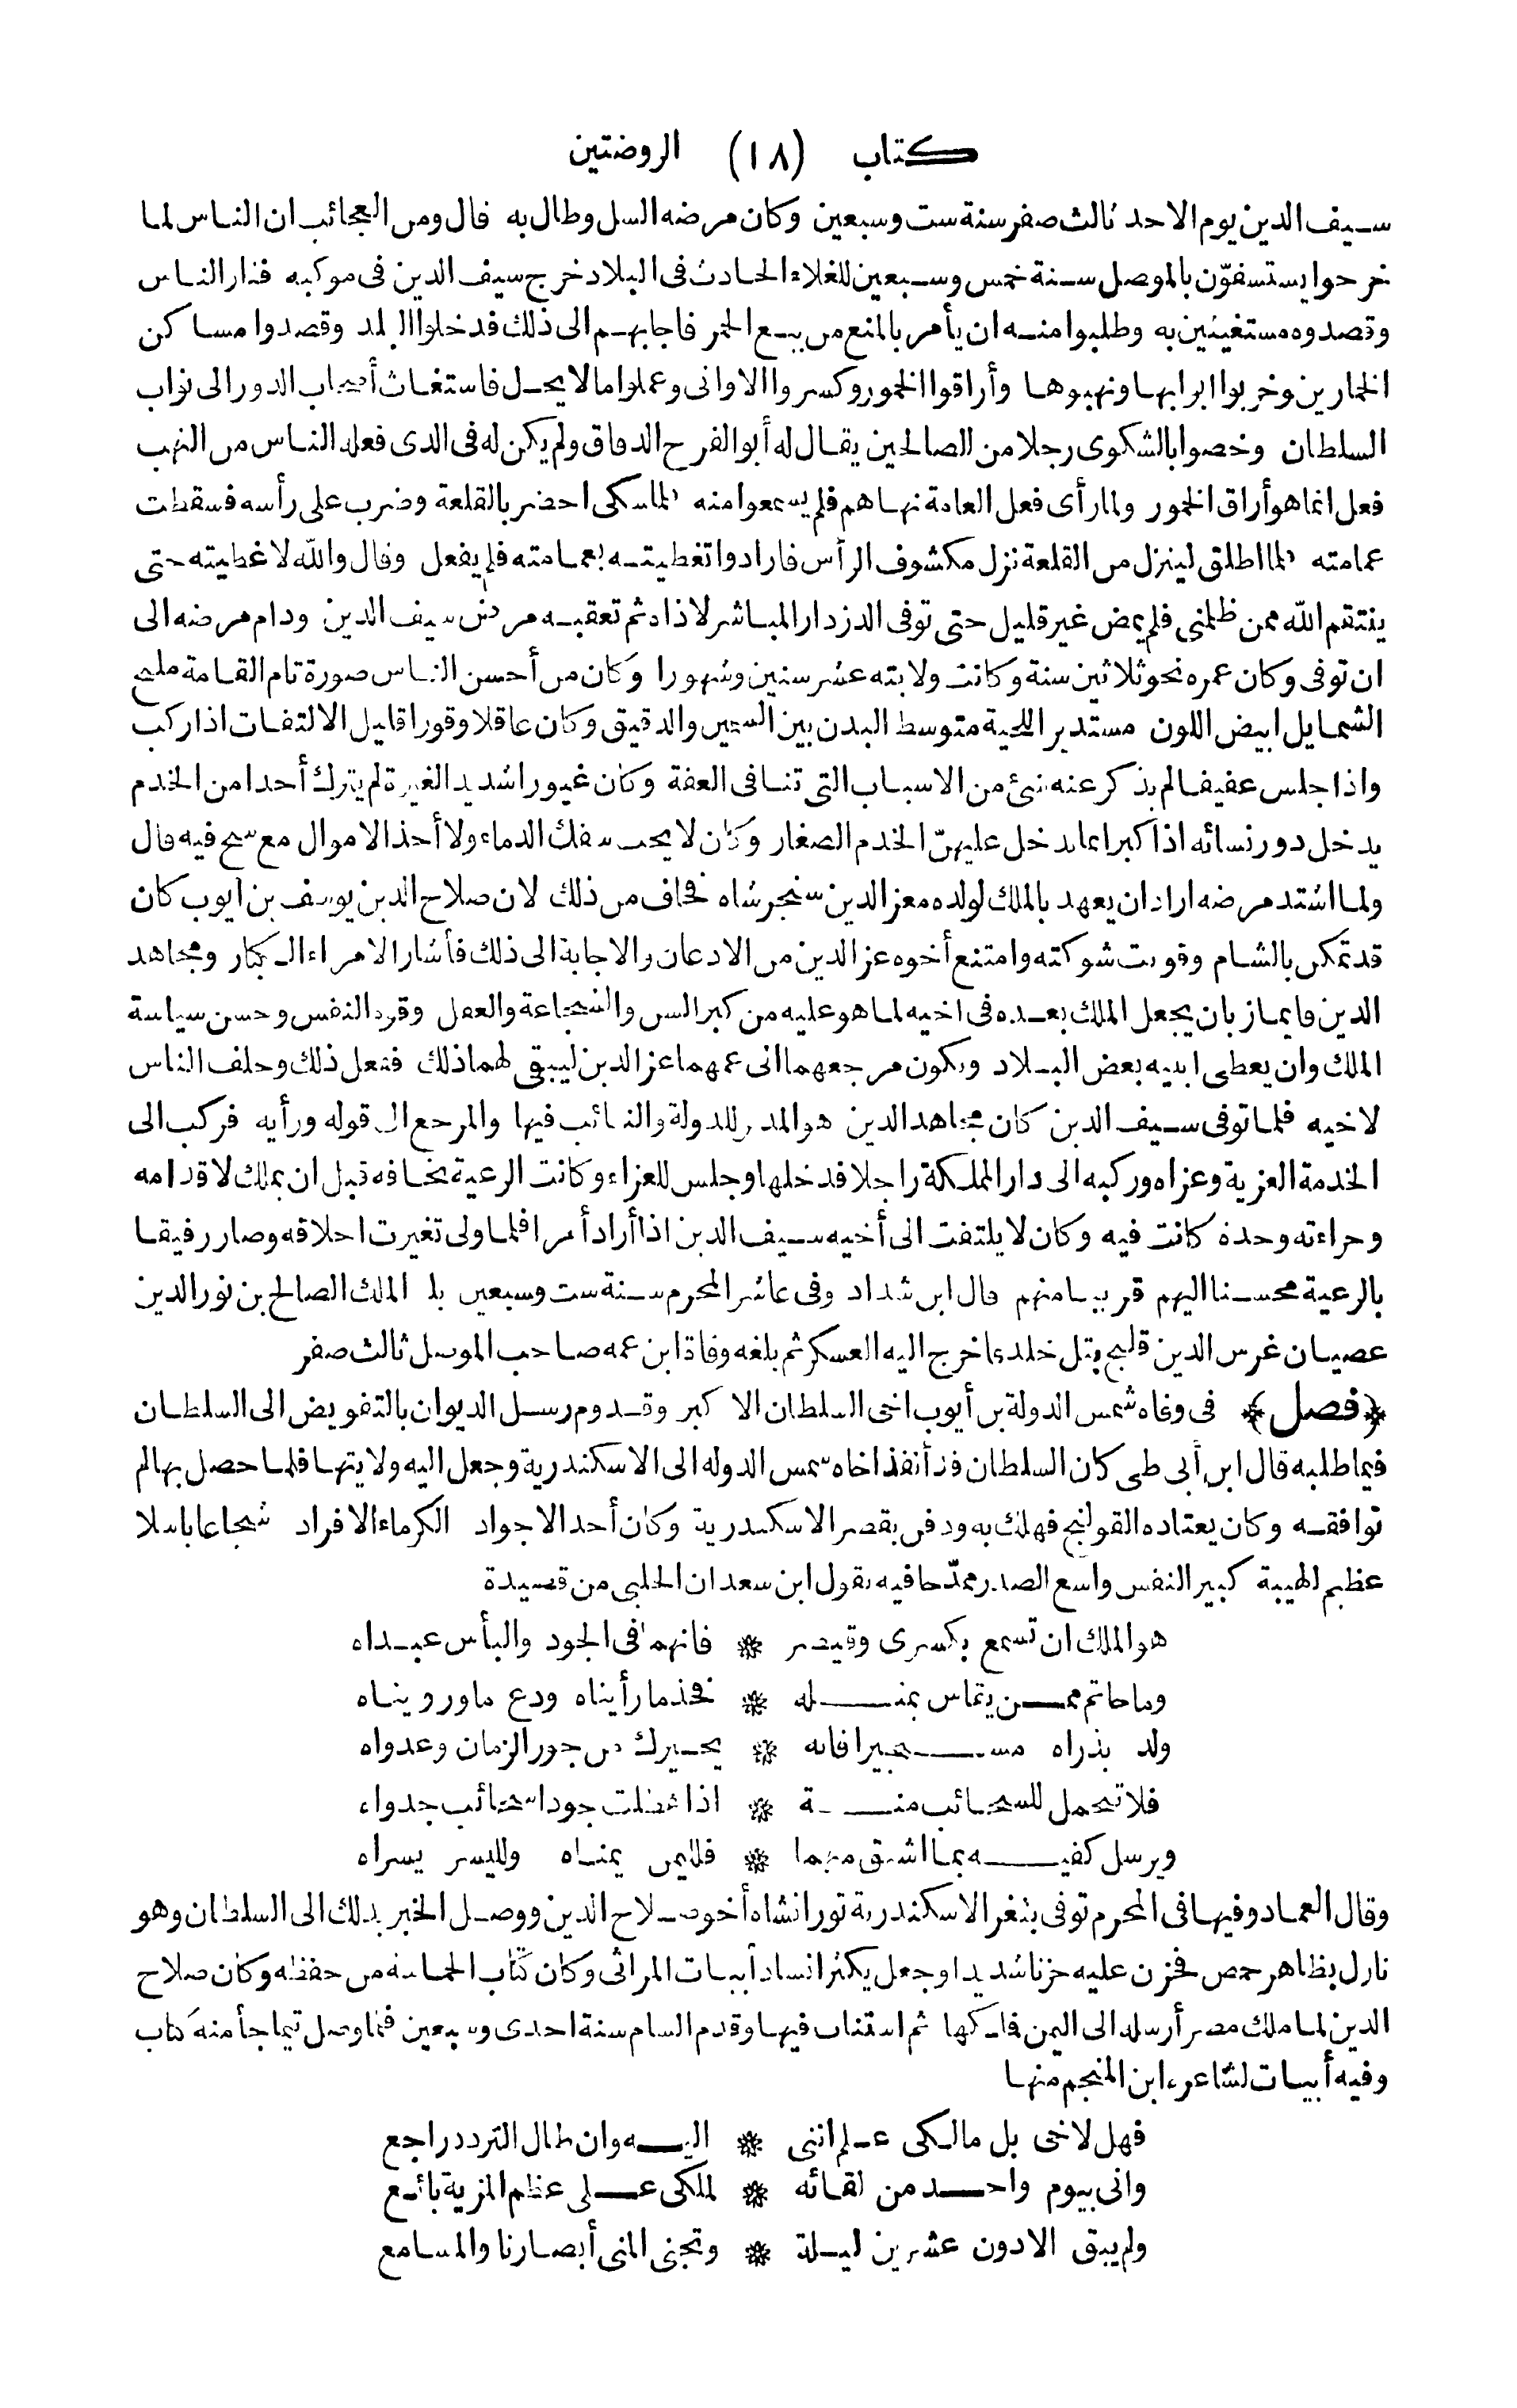 كتاب (١٨) الروضتين
سيف الدين يوم الاحد ثالث صفر سنة ست وسبعين وكان مرضه السل وطال به قال ومن العجائب ان الناس لما
خرجوا يستسقون بالموصل سنة خمس وسبعين للغلاء الحادث فى البلاد خرج سيف الدين فى موكبه فثار الناس
وقصدوه مستغيثين به وطلبوا منه ان يأمر بالمنع من بيع الخمر فاجابهم الى ذلك فدخلوا البلد وقصدوا مساكن
الخمارين وخربوا ابوابها ونهبوها وأراقوا الخمور وكسروا الاوانى وعملوا مالا يحل فاستغاث أصحاب الدور الى نواب
السلطان وخصوا بالشكوى رجلا من الصالحين يقال له أبو الفرج الدقاق ولم يكن له فى الذى فعله الناس من النهب
فعل انما هو أراق الخمور ولما رأى فعل العامة نهاهم فلم يسمعوا منه فلما شكى احضر بالقلعة وضرب على رأسه فسقطت
عمامته فلما اطلق لينزل من القلعة نزل مكشوف الرأس فارادوا تغطيته بعمامته فلم يفعل وقال والله لا غطيته حتى
ينتقم الله ممن ظلمنى فلم يمض غير قليل حتى توفى الدزدار المباشر لاذاه ثم تعقبه مرض سيف الدين ودام مرضه الى
ان توفى وكان عمره نحو ثلاثين سنة وكانت ولايته عشر سنين وشهورا وكان من أحسن الناس صورة تام القامة مليح
الشمايل ابيض اللون مستدير اللحية متوسط البدن بين السمين والدقيق وكان عاقلا وقورا قليل الالتفات اذا ركب
واذا جلس عفيفا لم يذكر عنه شئ من الاسباب التى تنافى العفة وكان غيورا شديد الغيرة لم يترك أحدا من الخدم
يدخل دور نسائه اذا كبر انما يدخل عليهنّ الخدم الصغار وكان لا يحب سفك الدماء ولا أخذ الاموال مع شح فيه قال
ولما اشتد مرضه اراد ان يعهد بالملك لولده معز الدين سنجر شاه فخاف من ذلك لان صلاح الدين يوسف بن ايوب كان
قد تمكن بالشام وقويت شوكته وامتنع أخوه عز الدين من الاذعان والاجابة الى ذلك فأشار الامراء الكبار ومجاهد
الدين قايماز بان يجعل الملك بعده فى اخيه لما هو عليه من كبر السن والشجاعة والعقل وقوة النفس وحسن سياسة
الملك وان يعطى ابنيه بعض البلاد ويكون مرجعهما الى عمهما عز الدين ليبقى لهما ذلك ففعل ذلك وحلف الناس
لاخيه فلما توفى سيف الدين كان مجاهد الدين هو المدبر للدولة والنائب فيها والمرجع الى قوله ورأيه فركب الى
الخدمة العزية وعزاه وركبه الى دار المملكة راجلا فدخلها وجلس للعزاء وكانت الرعية تخافه قبل ان يملك لاقدامه
وجراءته وحدة كانت فيه وكان لا يلتفت الى أخيه سيف الدين اذا أراد أمرا فلما ولى تغيرت اخلاقه وصار رفيقا
بالرعية محسنا اليهم قريبا منهم قال ابن شداد وفى عاشر المحرم سنة ست وسبعين بلغ الملك الصالح بن نور الدين
عصيان غرس الدين قليج بتل خالد فاخرج اليه العسكر ثم بلغه وفاة ابن عمه صاحب الموصل ثالث صفر
﴿فصل﴾ فى وفاة شمس الدولة بن أيوب اخى السلطان الاكبر وقدوم رسل الديوان بالتفويض الى السلطان
فيما طلبه قال ابن أبى طى كان السلطان قد أنفذ اخاه شمس الدوله الى الاسكندرية وجعل اليه ولايتها فلما حصل بها لم
توافقه وكان يعتاده القولنج فهلك به ودفن بقصر الاسكندرية وكان أحد الاجواد الكرماء الافراد شجاعا باسلا
عظيم الهيبة كبير النفس واسع الصدر ممدّحا فيه يقول ابن سعدان الحلبى من قصيدة
هو الملك ان تسمع بكسرى وقيصر * فانهما فى الجود والبأس عبداه
وما حاتم ممن يقاس بمثله * فخذ ما رأيناه ودع ما رويناه
ولذ بذراه مستجيرا فانه * يجيرك من جور الزمان وعدواه
فلا تحمل للسحائب منة * اذا هطلت جودا سحائب جدواه
ويرسل كفيه بما اشتق منهما * فلليمن يمناه ولليسر يسراه
وقال العماد وفيها فى المحرم توفى بثغر الاسكندرية تورانشاه أخو صلاح الدين ووصل الخبر بذلك الى السلطان وهو
نازل بظاهر حمص فحزن عليه حزنا شديدا وجعل يكثر انشاد أبيات المراثى وكان كتاب الحماسة من حفظه وكان صلاح
الدين لما ملك مصر أرسله الى اليمن فملكها ثم استناب فيها وقدم الشام سنة احدى وسبعين فلما وصل تيما جأ منه كتاب
وفيه أبيات لشاعره ابن المنجم منها
فهل لاخى بل مالكى علم اننى * اليه وان طال التردد راجع
وانى بيوم واحد من لقائه * لملكى على عظم المزية بائع
ولم يبق الا دون عشرين ليلة * وتجنى المنى أبصارنا والمسامع